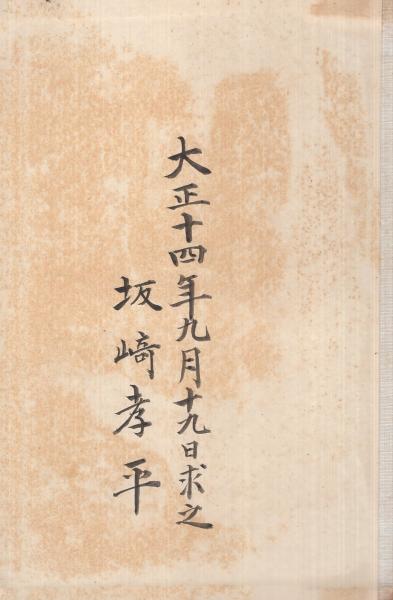 大正十四年九月十九日求之
坂﨑孝平